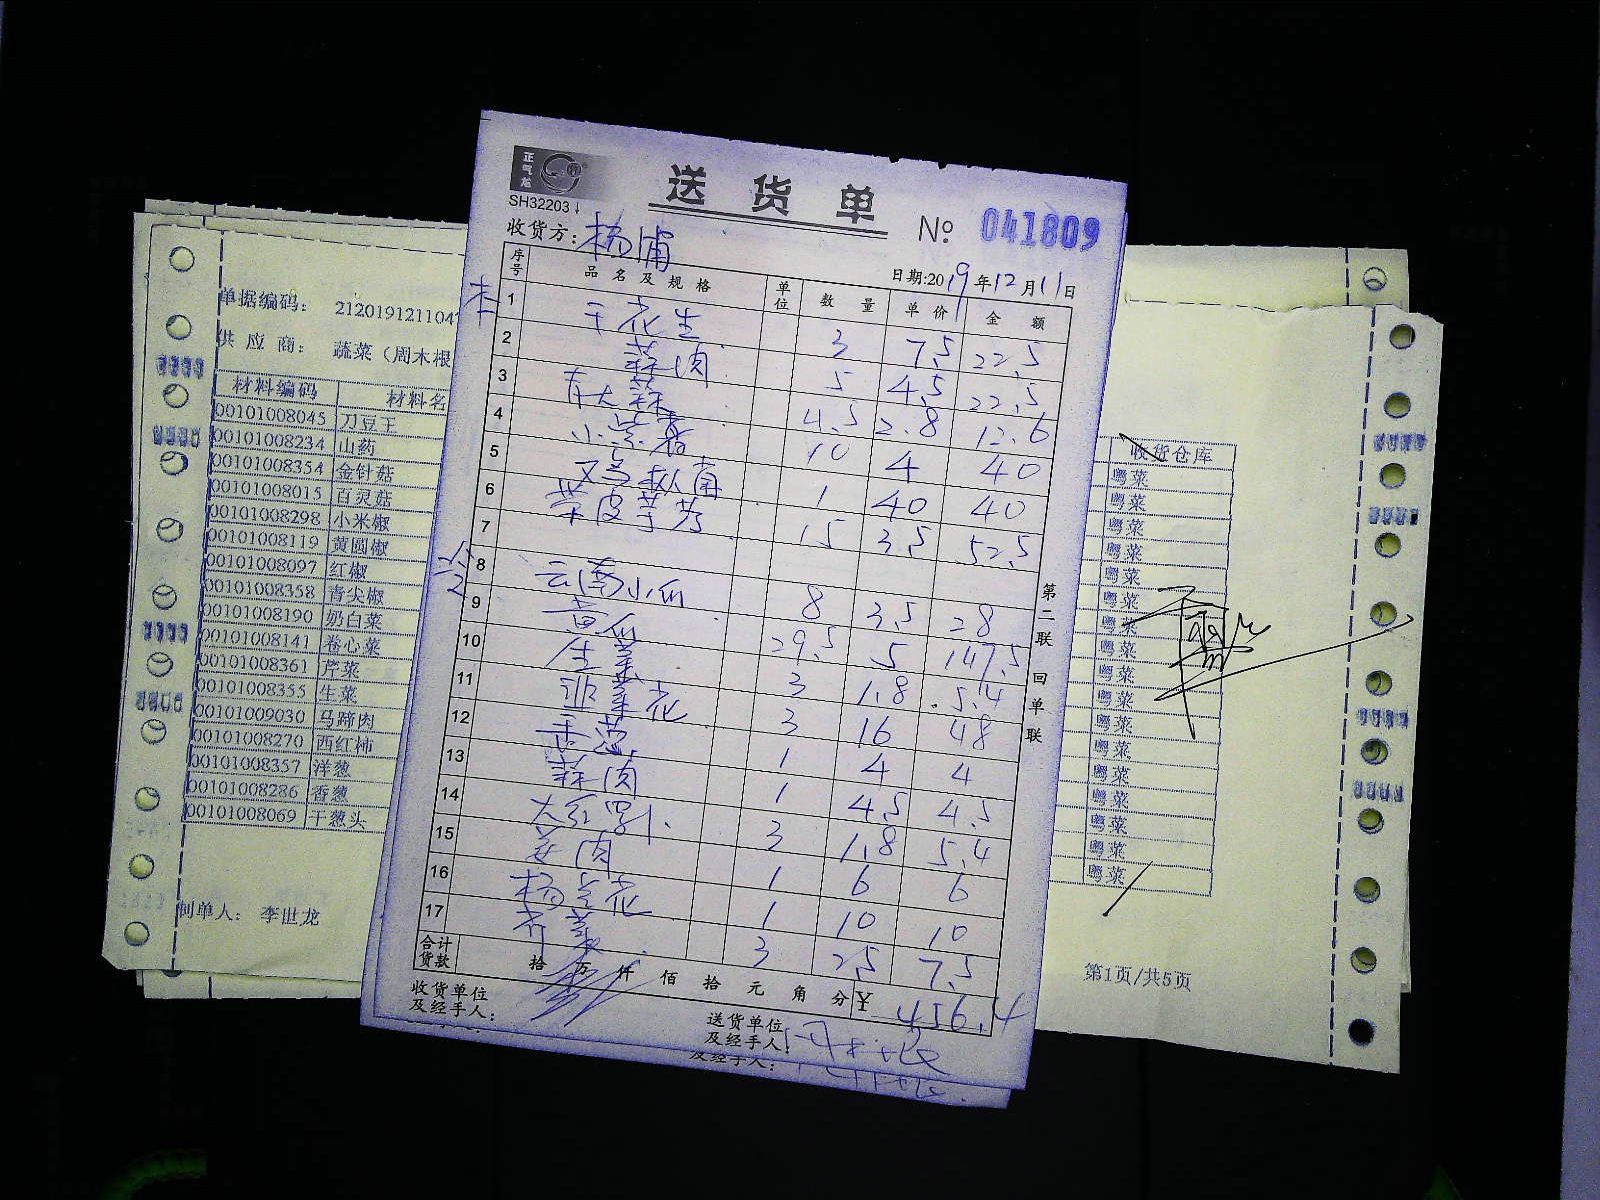 正气龙
SH32203
送货单
No 041809
收货方: 杨浦
日期:2019年12月11日
序号 品名及规格 单位 数量 单价 金额
1 干花生 3 7.5 22.5
2 蒜肉 5 4.5 22.5
3 青大蒜 4.5 2.8 12.6
4 10 4 40
5 鸡枞菌 1 40 40
6 带皮芋艿 15 3.5 52.5
7
8 云南小瓜 8 3.5 28
9 黄瓜 29.5 5 147.5
10 生菜 3 1.8 5.4
11 韭菜花 3 16 48
12 香葱 1 4 4
13 蒜肉 1 4.5 4.5
14 3 1.8 5.4
15 姜肉 1 6 6
16 杨兰花 1 10 10
17 芹菜 3 2.5 7.5
合计货款 拾 万 仟 佰 拾 元 角 分 ¥ 456.4
收货单位及经手人:
送货单位及经手人:
及经手人:
第二联 回单联
单据编码: 2120191211047
供应商: 蔬菜(周木根
材料编码 材料名
00101008045 刀豆王
00101008234 山药
00101008354 金针菇
00101008015 百灵菇
00101008298 小米椒
00101008119 黄圆椒
00101008097 红椒
00101008358 青尖椒
00101008190 奶白菜
00101008141 卷心菜
00101008361 芹菜
00101008355 生菜
00101009030 马蹄肉
00101008270 西红柿
00101008357 洋葱
00101008286 香葱
00101008069 干葱头
制单人: 李世龙
收货仓库
粤菜
粤菜
粤菜
粤菜
粤菜
粤菜
粤菜
粤菜
粤菜
粤菜
粤菜
粤菜
粤菜
粤菜
粤菜
粤菜
粤菜
第1页/共5页